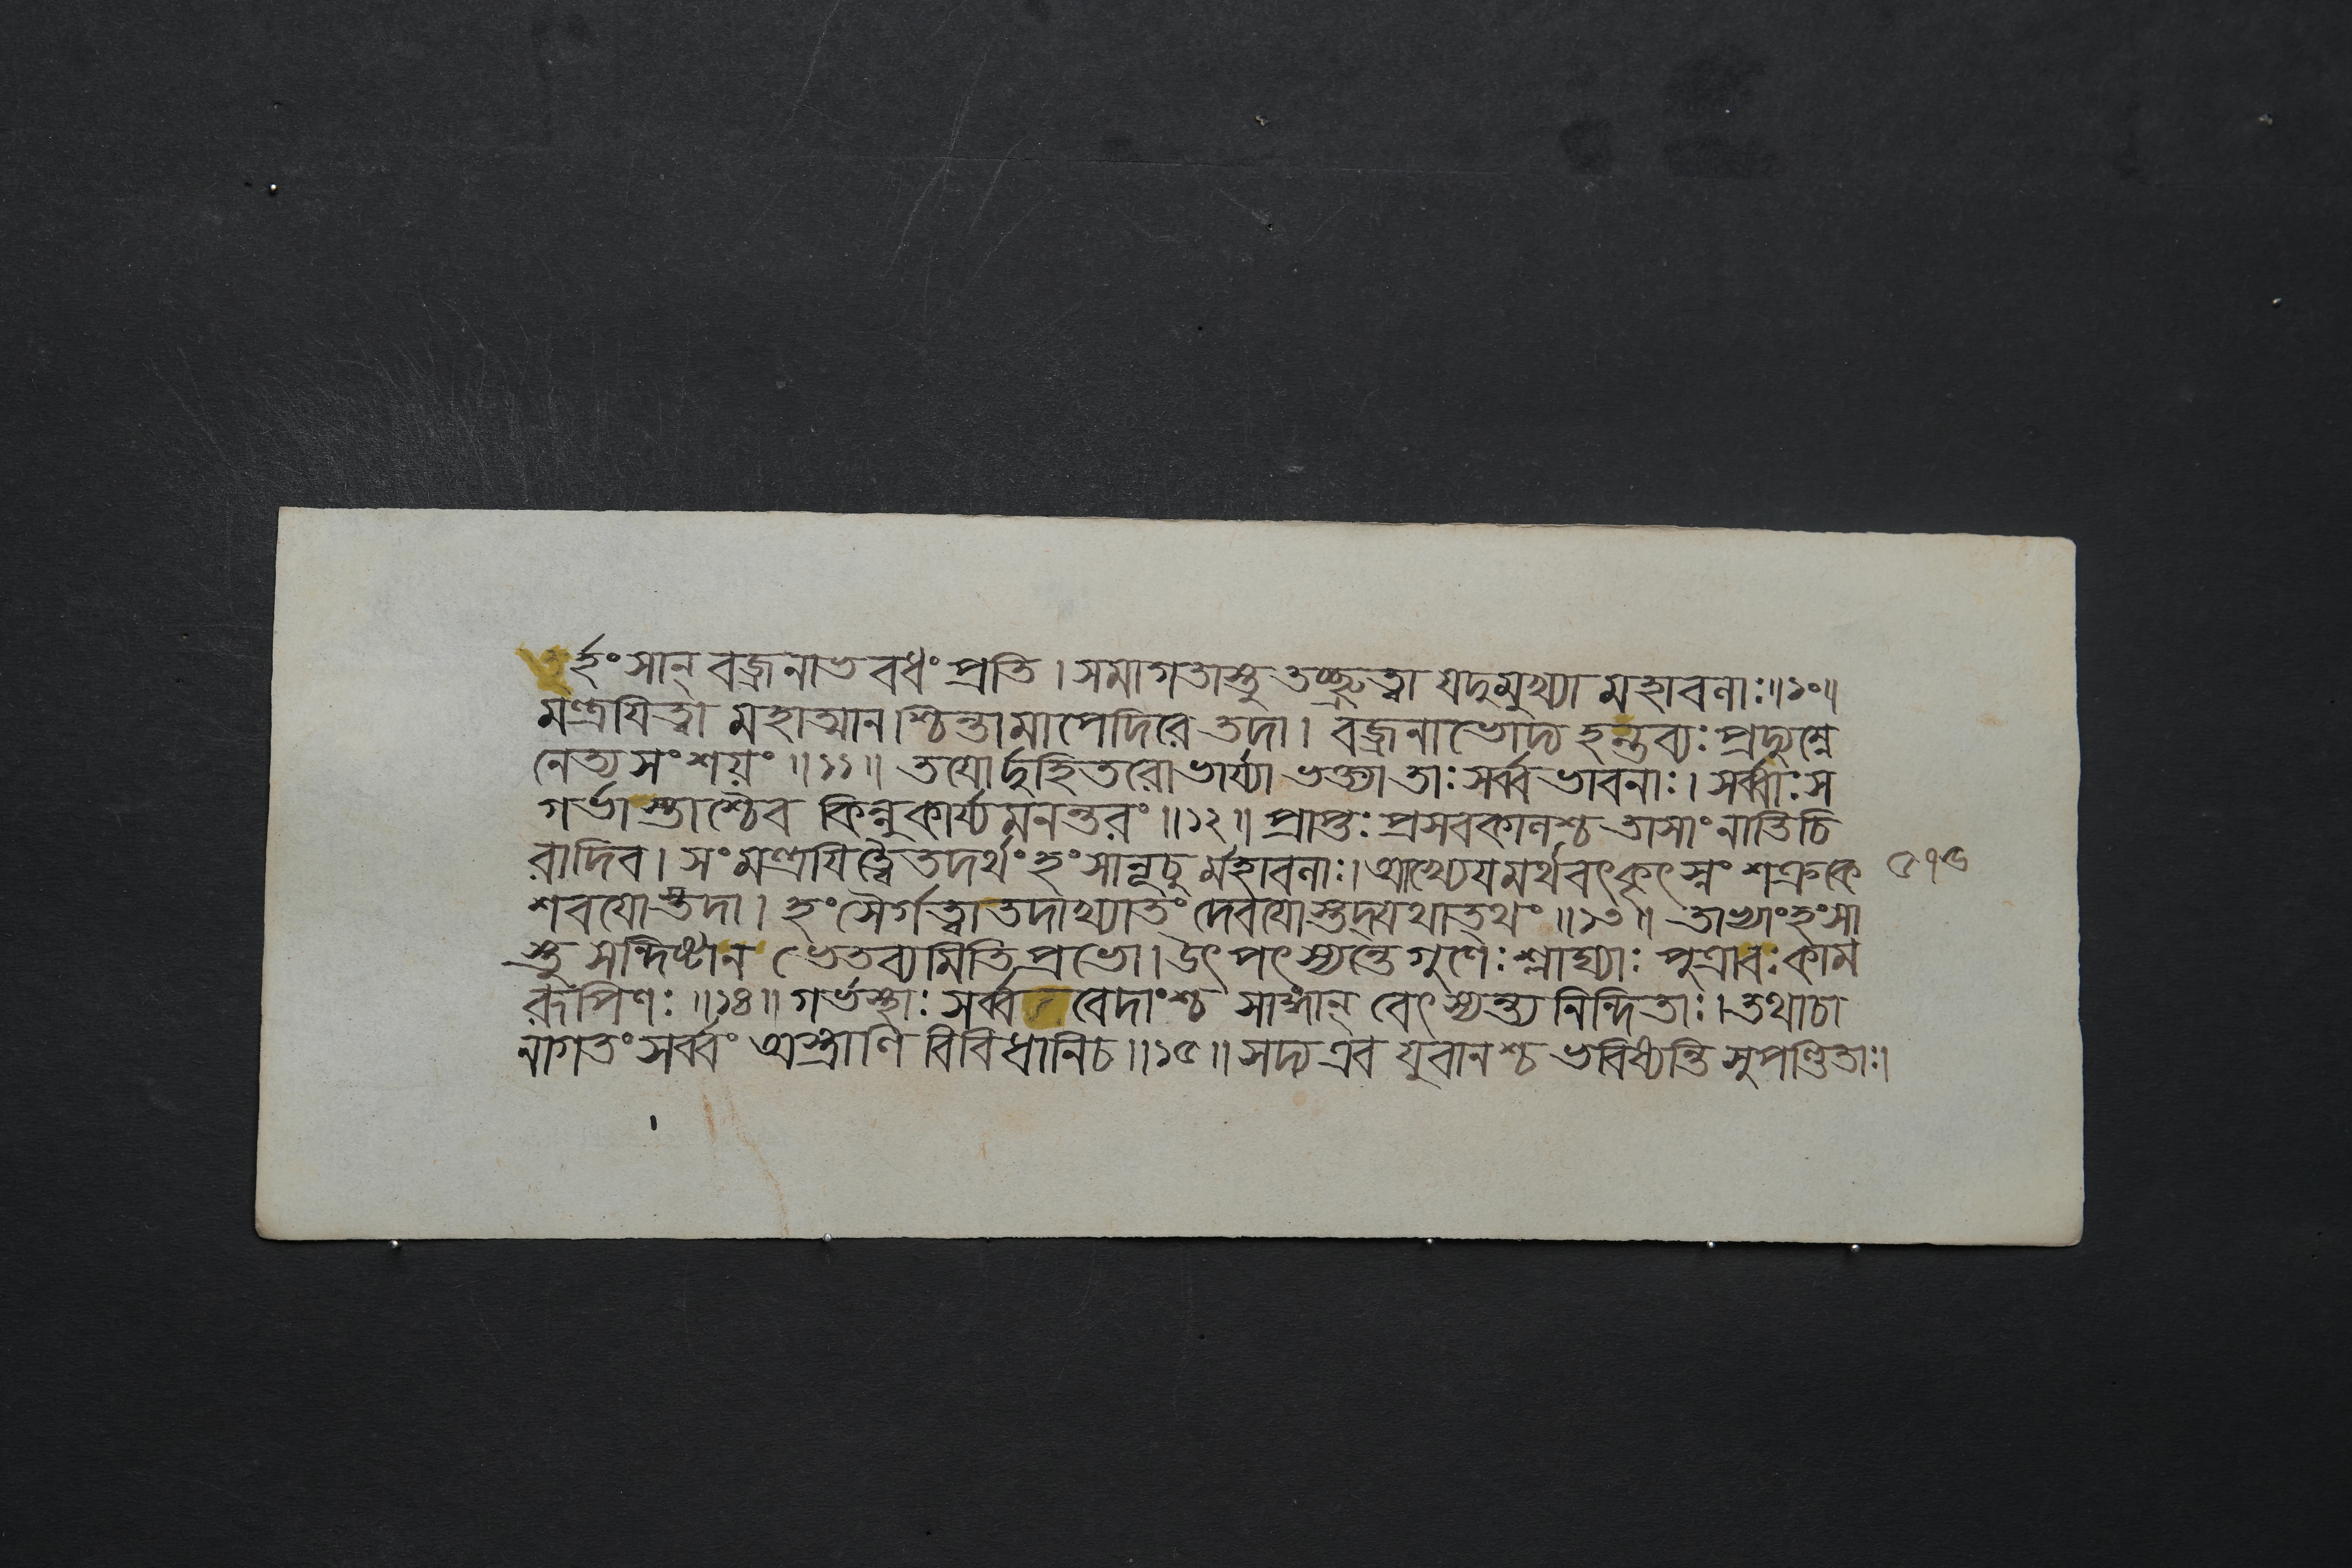 তুর্হংসান্ বজ্রনাভ বধং প্রতি। সমাগতাস্তু তচ্ছ্রুত্বা যদুমুখ্যা মহাবলাঃ॥১০॥
মন্ত্রযিত্বা মহাত্মানশ্চিন্তামাপেদিরে তদা। বজ্রনাভোদ্য হন্তব্যঃ প্রদ্যুম্নে
নেত্য সংশয়ং॥১১॥ তযোর্দুহিতরো ভার্য্যা ভক্ত্যা তাঃ সর্ব্ব ভাবনাঃ। সর্ব্বাঃ স
গর্ভাস্তাশ্চৈব কিন্নু কার্য্যমনন্তরং॥১২॥ প্রাপ্তঃ প্রসবকালশ্চ তাসাং নাতিচি
রাদিব। সংমন্ত্রযিত্বৈতদর্থং হংসানূচু র্মহাবলাঃ। আখ্যেযমর্থবৎ কৃৎস্নং শক্রকে
শবযোস্তদা। হংসৈর্গত্বা তদাখ্যাতং দেবযোস্তদ্যথাতথং॥১৩॥ তাভ্যাং হংসা
স্তু সন্দিষ্টা ন ভেতব্যমিতি প্রভো। উৎপৎস্যন্তে গুণৈঃ শ্লাঘ্যাঃ পুত্রা বঃ কাম
রূপিণঃ॥১৪॥ গর্ভস্থাঃ সর্ব্ব বেদাংশ্চ সাঙ্গান্ বেৎস্যন্ত্য নিন্দিতাঃ। তথাচা
নাগতং সর্ব্বং অস্ত্রাণি বিবিধানিচ॥১৫॥ সদ্য এব যুবানশ্চ ভবিষ্যন্তি সুপণ্ডিতাঃ।
৫৭৬